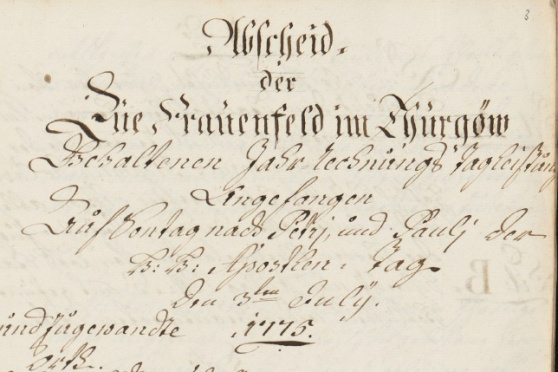 Abscheid.
der
Zue Frauenfeld im Thurgöw
Gehaltenen Jahr-rechnungs tagleistung
Angefangen
Auf Sontag nach Petrj, und Paulj der
H: H: Aposteln. tag.
den 3ten Julÿ.
und zugewandte 1775.
Orth.